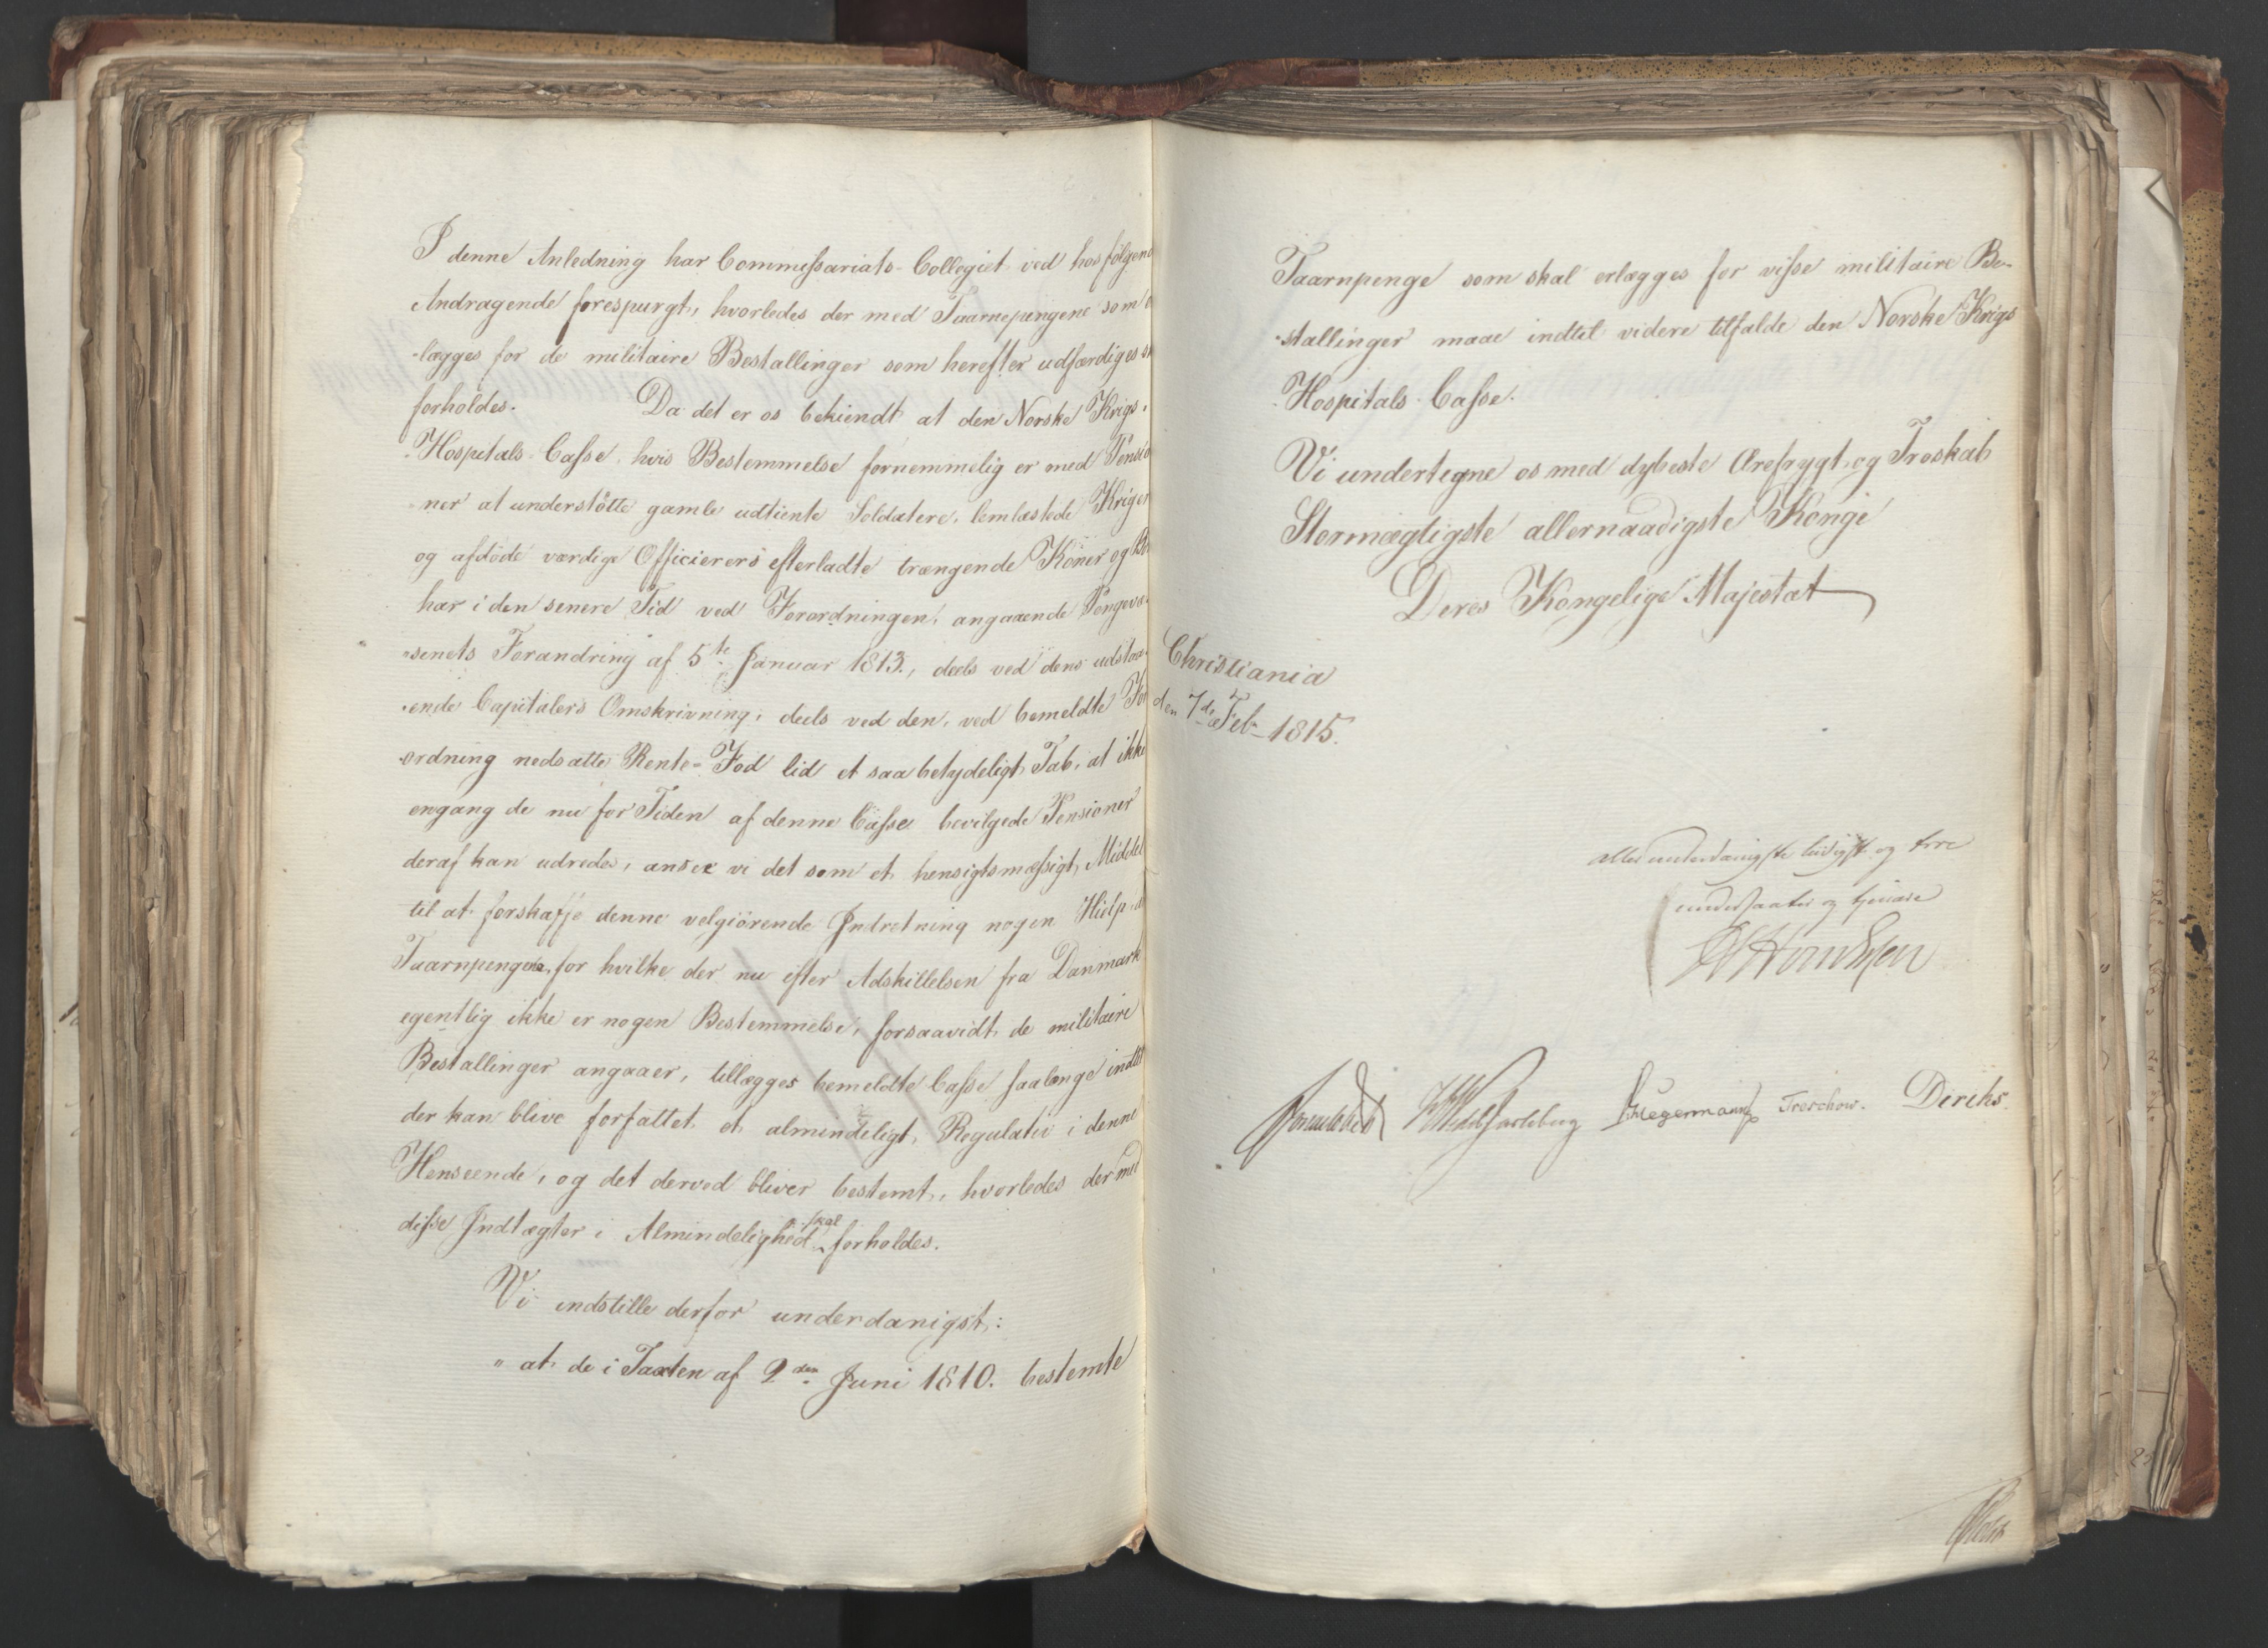 I denne Anledning har Commissariats-Collegiet ved hosfølgend
Andragende forespurgt, hvorledes der med Taarnepengene som
-lægges for de militaire Bestallinger som herefter udfærdiges
forholdes. Da det er os bekiendt at den Norske Krigs-
Hospitals-Casse, hvis Bestemmelse fornemmelig er med Pensio
ner at understøtte gamle udtiente Soldatere, lemlæstede Kriger
og afdøde værdige Officierers efterladte trængende Koner og
har i den senere Tid ved Forordningen, angaaende Pengevæ-
-senets Forandring af 5te Januar 1813., deels ved dens udstaa-
-ende Capitalers Omskrivning, deels ved den, ved bemeldte For
-ordning nedsatte Rente-Fod lid et saa betydeligt Tab, at ikke
engang de nu for Tiden af denne Casse bevilgede Pensioner
deraf kan udredes, ansee vi det som et hensigtsmæssigt Middel
til at forskaffe denne velgiørende Indretning nogen Hielp, at
Taarnpengene, for hvilke der nu efter Adskillelsen fra Danmark
egentlig ikke er nogen Bestemmelse, forsaavidt de militaire
Bestallinger angaaer, tillægges bemeldte Casse saalænge indtil
der kan blive forfattet et almindeligt Regulativ i denne
Henseende, og det derved bliver bestemt, hvorledes der med
disse Indtægter i Almindelighed skal forholdes.
Vi indstille derfor underdanigst:
" at de i Taxten af 2den Juni 1810. bestemte
Taarnpenge som skal erlægges for visse militaire Be-
-stallinger maae indtil videre tilfalde den Norske Krigs
-Hospitals-Casse.
Vi undertegne os med dybeste Ærefrygt og Troskab
Stormægtigste allernaadigste Konge
Deres Kongelige Majestæt
Christiania
den 7de Feb. 1815.
allerunderdanigste lydigste og troe
undersaatter og tjenere
Sommerhielm HWedelJarlsberg Hegermann Treschow. Diriks